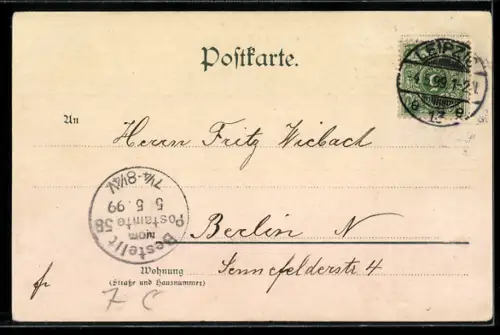 Postkarte.
LEIPZIG
99. 1-2N
13
An
Herrn Fritz Wiebach
Bestellt
vom
Postamte 58
5. 5. 99
7¼-8½V.
Berlin N
Wohnung
(Straße und Hausnummer)
Sennefelderstr 4
fr